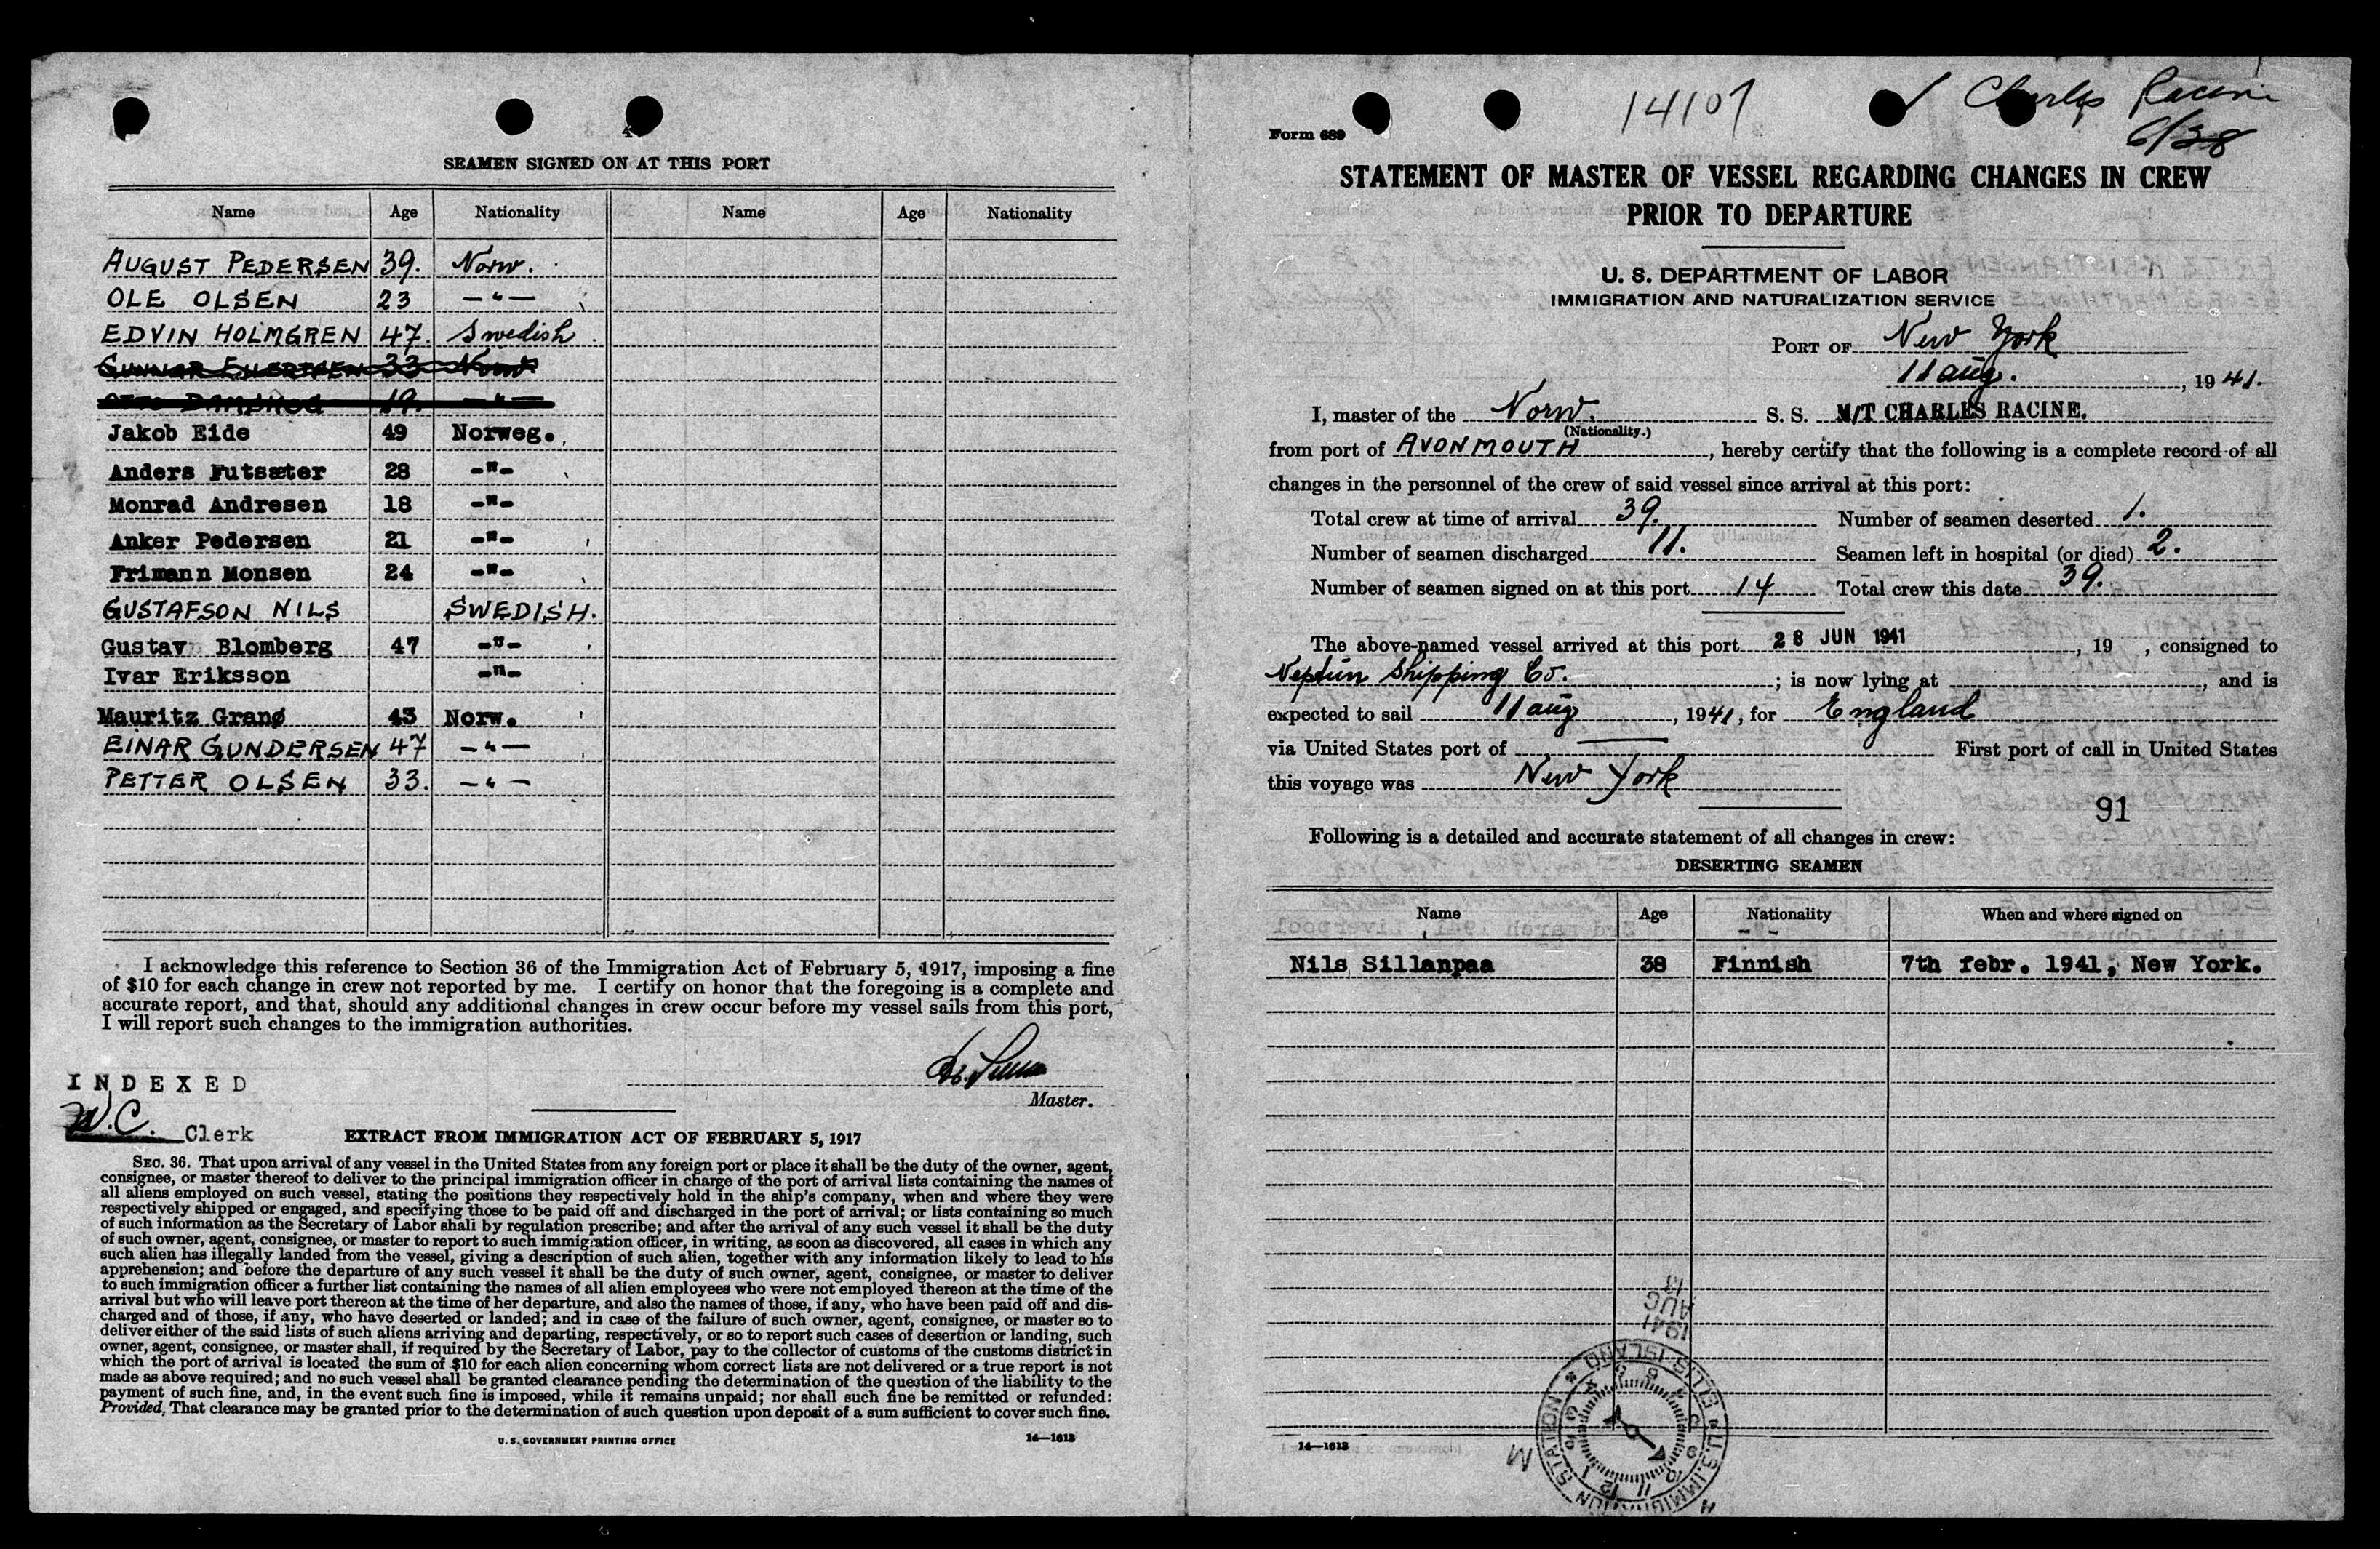 4
SEAMEN SIGNED ON AT THIS PORT
Name Age Nationality Name Age Nationality
AUGUST PEDERSEN 39. Norw.
OLE OLSEN 23 -"-
EDVIN HOLMGREN 47. Swedish
33 Norw
19. -"-
Jakob Eide 49 Norweg.
Anders Futsæter 28 -"-
Monrad Andresen 18 -"-
Anker Pedersen 21 -"-
Frimann Monsen 24 -"-
GUSTAFSON NILS SWEDISH.
Gustav Blomberg 47 -"-
Ivar Eriksson -"-
Mauritz Granø 43 Norw.
EINAR GUNDERSEN 47 -"-
PETTER OLSEN 33. -"-
I acknowledge this reference to Section 36 of the Immigration Act of February 5, 1917, imposing a fine
of $10 for each change in crew not reported by me. I certify on honor that the foregoing is a complete and
accurate report, and that, should any additional changes in crew occur before my vessel sails from this port,
I will report such changes to the immigration authorities.
Master.
INDEXED
W.C. Clerk
EXTRACT FROM IMMIGRATION ACT OF FEBRUARY 5, 1917
SEC. 36. That upon arrival of any vessel in the United States from any foreign port or place it shall be the duty of the owner, agent,
consignee, or master thereof to deliver to the principal immigration officer in charge of the port of arrival lists containing the names of
all aliens employed on such vessel, stating the positions they respectively hold in the ship's company, when and where they were
respectively shipped or engaged, and specifying those to be paid off and discharged in the port of arrival; or lists containing so much
of such information as the Secretary of Labor shall by regulation prescribe; and after the arrival of any such vessel it shall be the duty
of such owner, agent, consignee, or master to report to such immigration officer, in writing, as soon as discovered, all cases in which any
such alien has illegally landed from the vessel, giving a description of such alien, together with any information likely to lead to his
apprehension; and before the departure of any such vessel it shall be the duty of such owner, agent, consignee, or master to deliver
to such immigration officer a further list containing the names of all alien employees who were not employed thereon at the time of the
arrival but who will leave port thereon at the time of her departure, and also the names of those, if any, who have been paid off and dis-
charged and of those, if any, who have deserted or landed; and in case of the failure of such owner, agent, consignee, or master so to
deliver either of the said lists of such aliens arriving and departing, respectively, or so to report such cases of desertion or landing, such
owner, agent, consignee, or master shall, if required by the Secretary of Labor, pay to the collector of customs of the customs district in
which the port of arrival is located the sum of $10 for each alien concerning whom correct lists are not delivered or a true report is not
made as above required; and no such vessel shall be granted clearance pending the determination of the question of the liability to the
payment of such fine, and, in the event such fine is imposed, while it remains unpaid; nor shall such fine be remitted or refunded:
Provided, That clearance may be granted prior to the determination of such question upon deposit of a sum sufficient to cover such fine.
U. S. GOVERNMENT PRINTING OFFICE 14—1613
14107 Charles Racine
6/38
Form 689
STATEMENT OF MASTER OF VESSEL REGARDING CHANGES IN CREW
PRIOR TO DEPARTURE
U. S. DEPARTMENT OF LABOR
IMMIGRATION AND NATURALIZATION SERVICE
PORT OF New York
11 aug. , 1941.
I, master of the Norw. S. S. M/T CHARLES RACINE.
(Nationality.)
from port of AVONMOUTH , hereby certify that the following is a complete record of all
changes in the personnel of the crew of said vessel since arrival at this port:
Total crew at time of arrival 39. Number of seamen deserted 1.
Number of seamen discharged 11. Seamen left in hospital (or died) 2.
Number of seamen signed on at this port 14 Total crew this date 39.
The above-named vessel arrived at this port 28 JUN 1941 , 19 , consigned to
Neptun Shipping Co. ; is now lying at , and is
expected to sail 11 aug , 1941, for England
via United States port of First port of call in United States
this voyage was New York
91
Following is a detailed and accurate statement of all changes in crew:
DESERTING SEAMEN
Name Age Nationality When and where signed on
Nils Sillanpaa 38 Finnish 7th febr. 1941, New York.
1941
AUG
13
U.S. IMMIGRATION STATION * ELLIS ISLAND *
14—1613